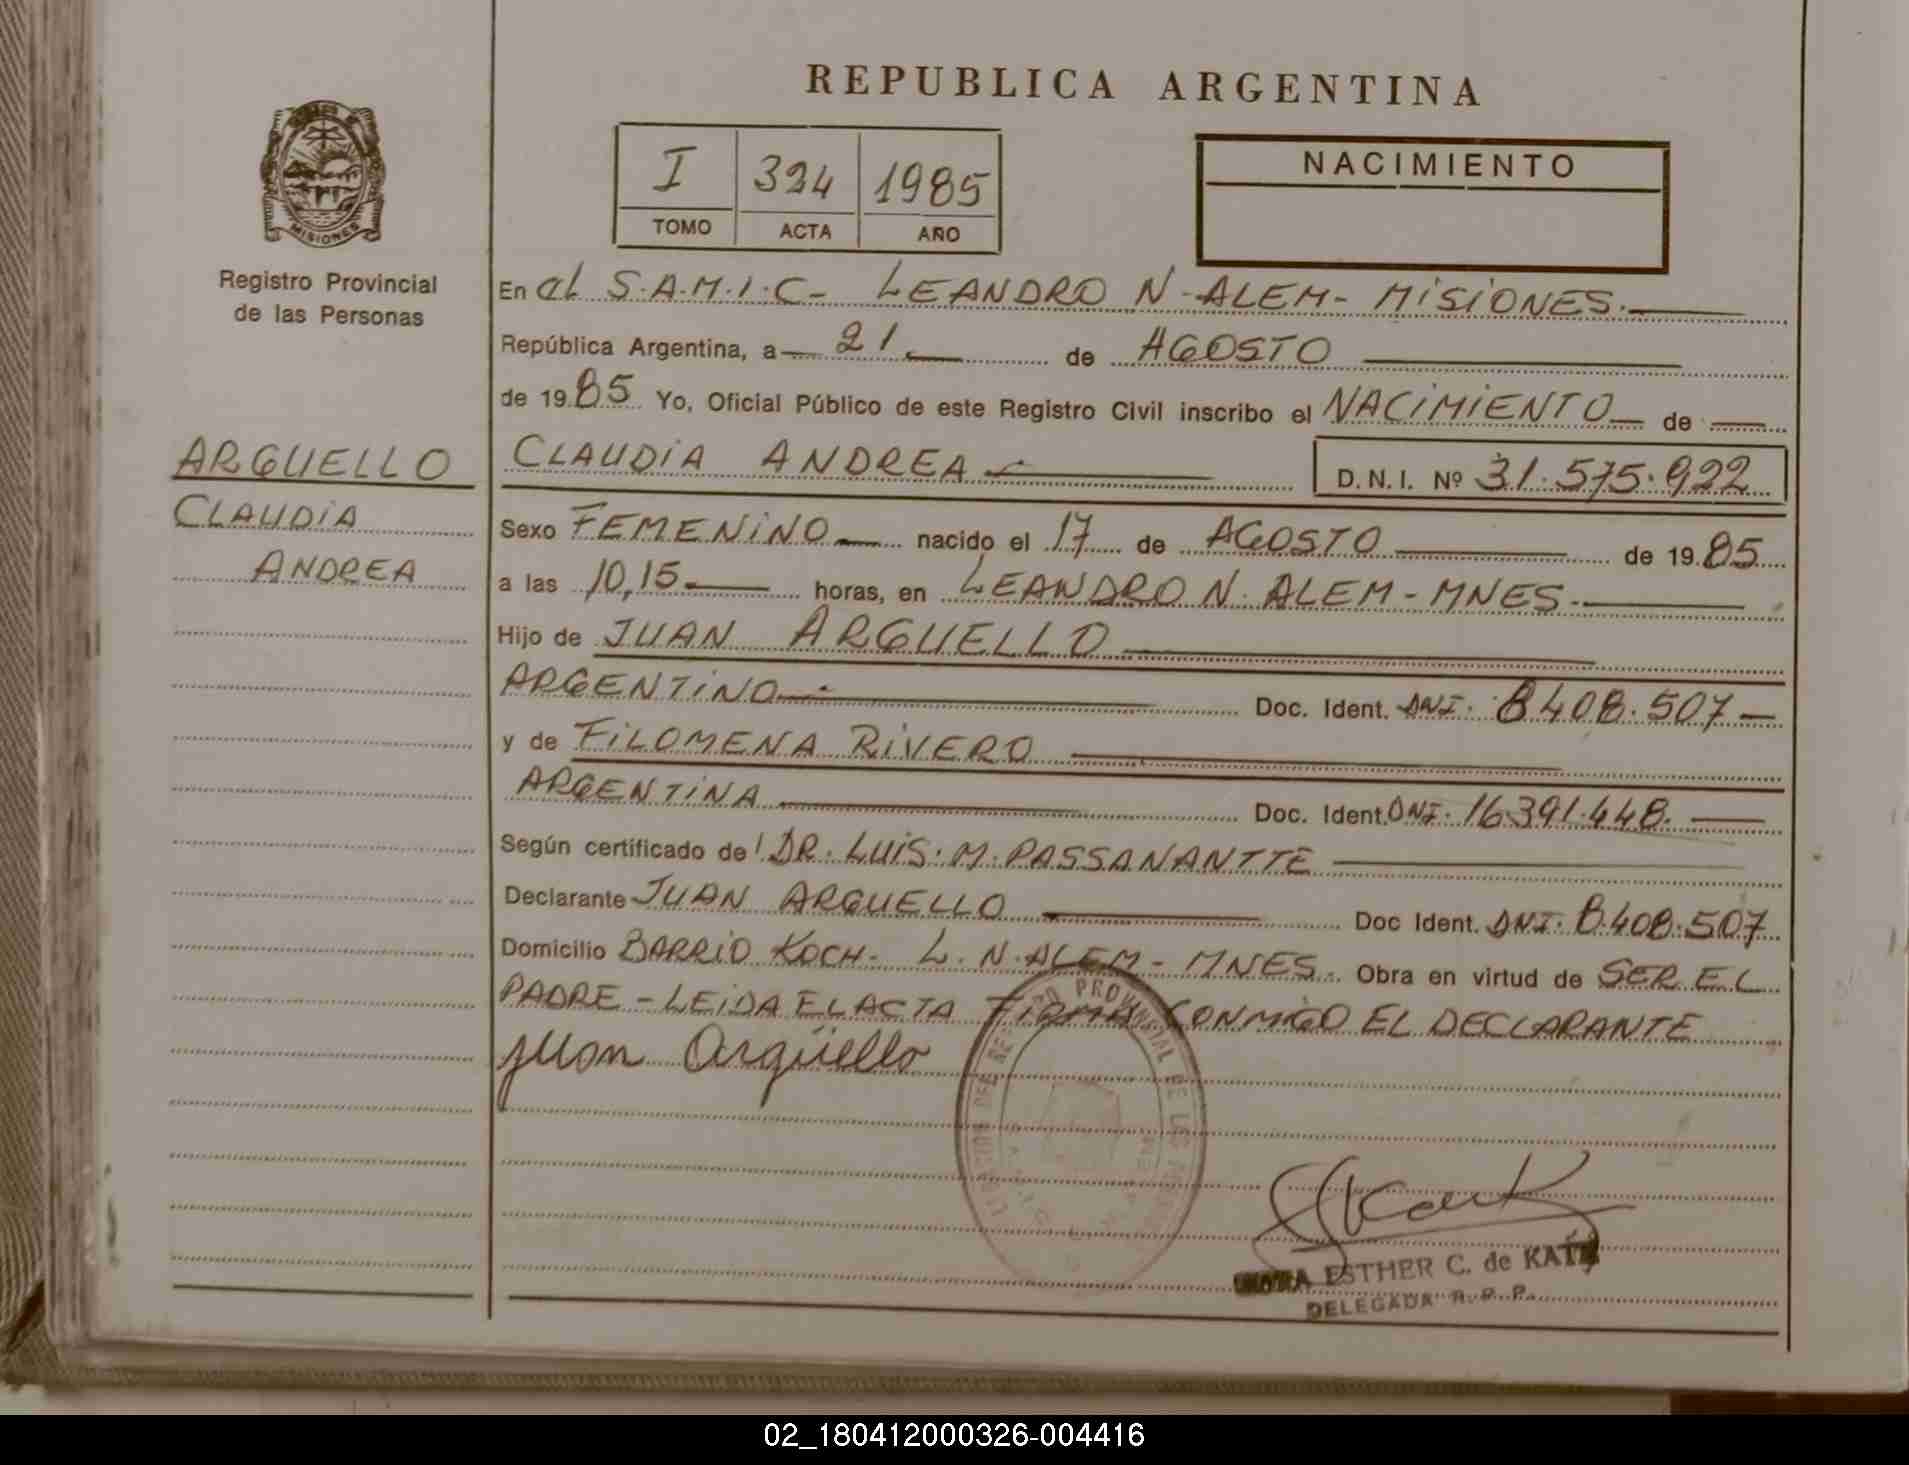 REPUBLICA ARGENTINA
I 324 1985
TOMO ACTA AÑO
NACIMIENTO
MISIONES
Registro Provincial
de las Personas
ARGUELLO
CLAUDIA
ANDREA
En el S.A.M.I.C- LEANDRO N-ALEM- MISIONES.
República Argentina, a 21 de AGOSTO
de 1985 Yo, Oficial Público de este Registro Civil inscribo el NACIMIENTO de
CLAUDIA ANDREA D.N.I. Nº 31.575.922
Sexo FEMENINO nacido el 17 de AGOSTO de 1985
a las 10,15 horas, en LEANDRO N. ALEM - MNES.
Hijo de JUAN ARGUELLO
ARGENTINO Doc. Ident. DNI. 8408.507
y de FILOMENA RIVERO
ARGENTINA Doc. Ident. DNI. 16391.448.
Según certificado de DR. LUIS. M. PASSANANTTE
Declarante JUAN ARGUELLO Doc Ident. DNI. 8.408.507
Domicilio BARRIO KOCH- L. N. ALEM - MNES. Obra en virtud de SER EL
PADRE - LEIDA EL ACTA FIRMA CONMIGO EL DECLARANTE
Juan Argüello
ESTHER C. de KATZ
DELEGADA R. P. P.
02_180412000326-004416